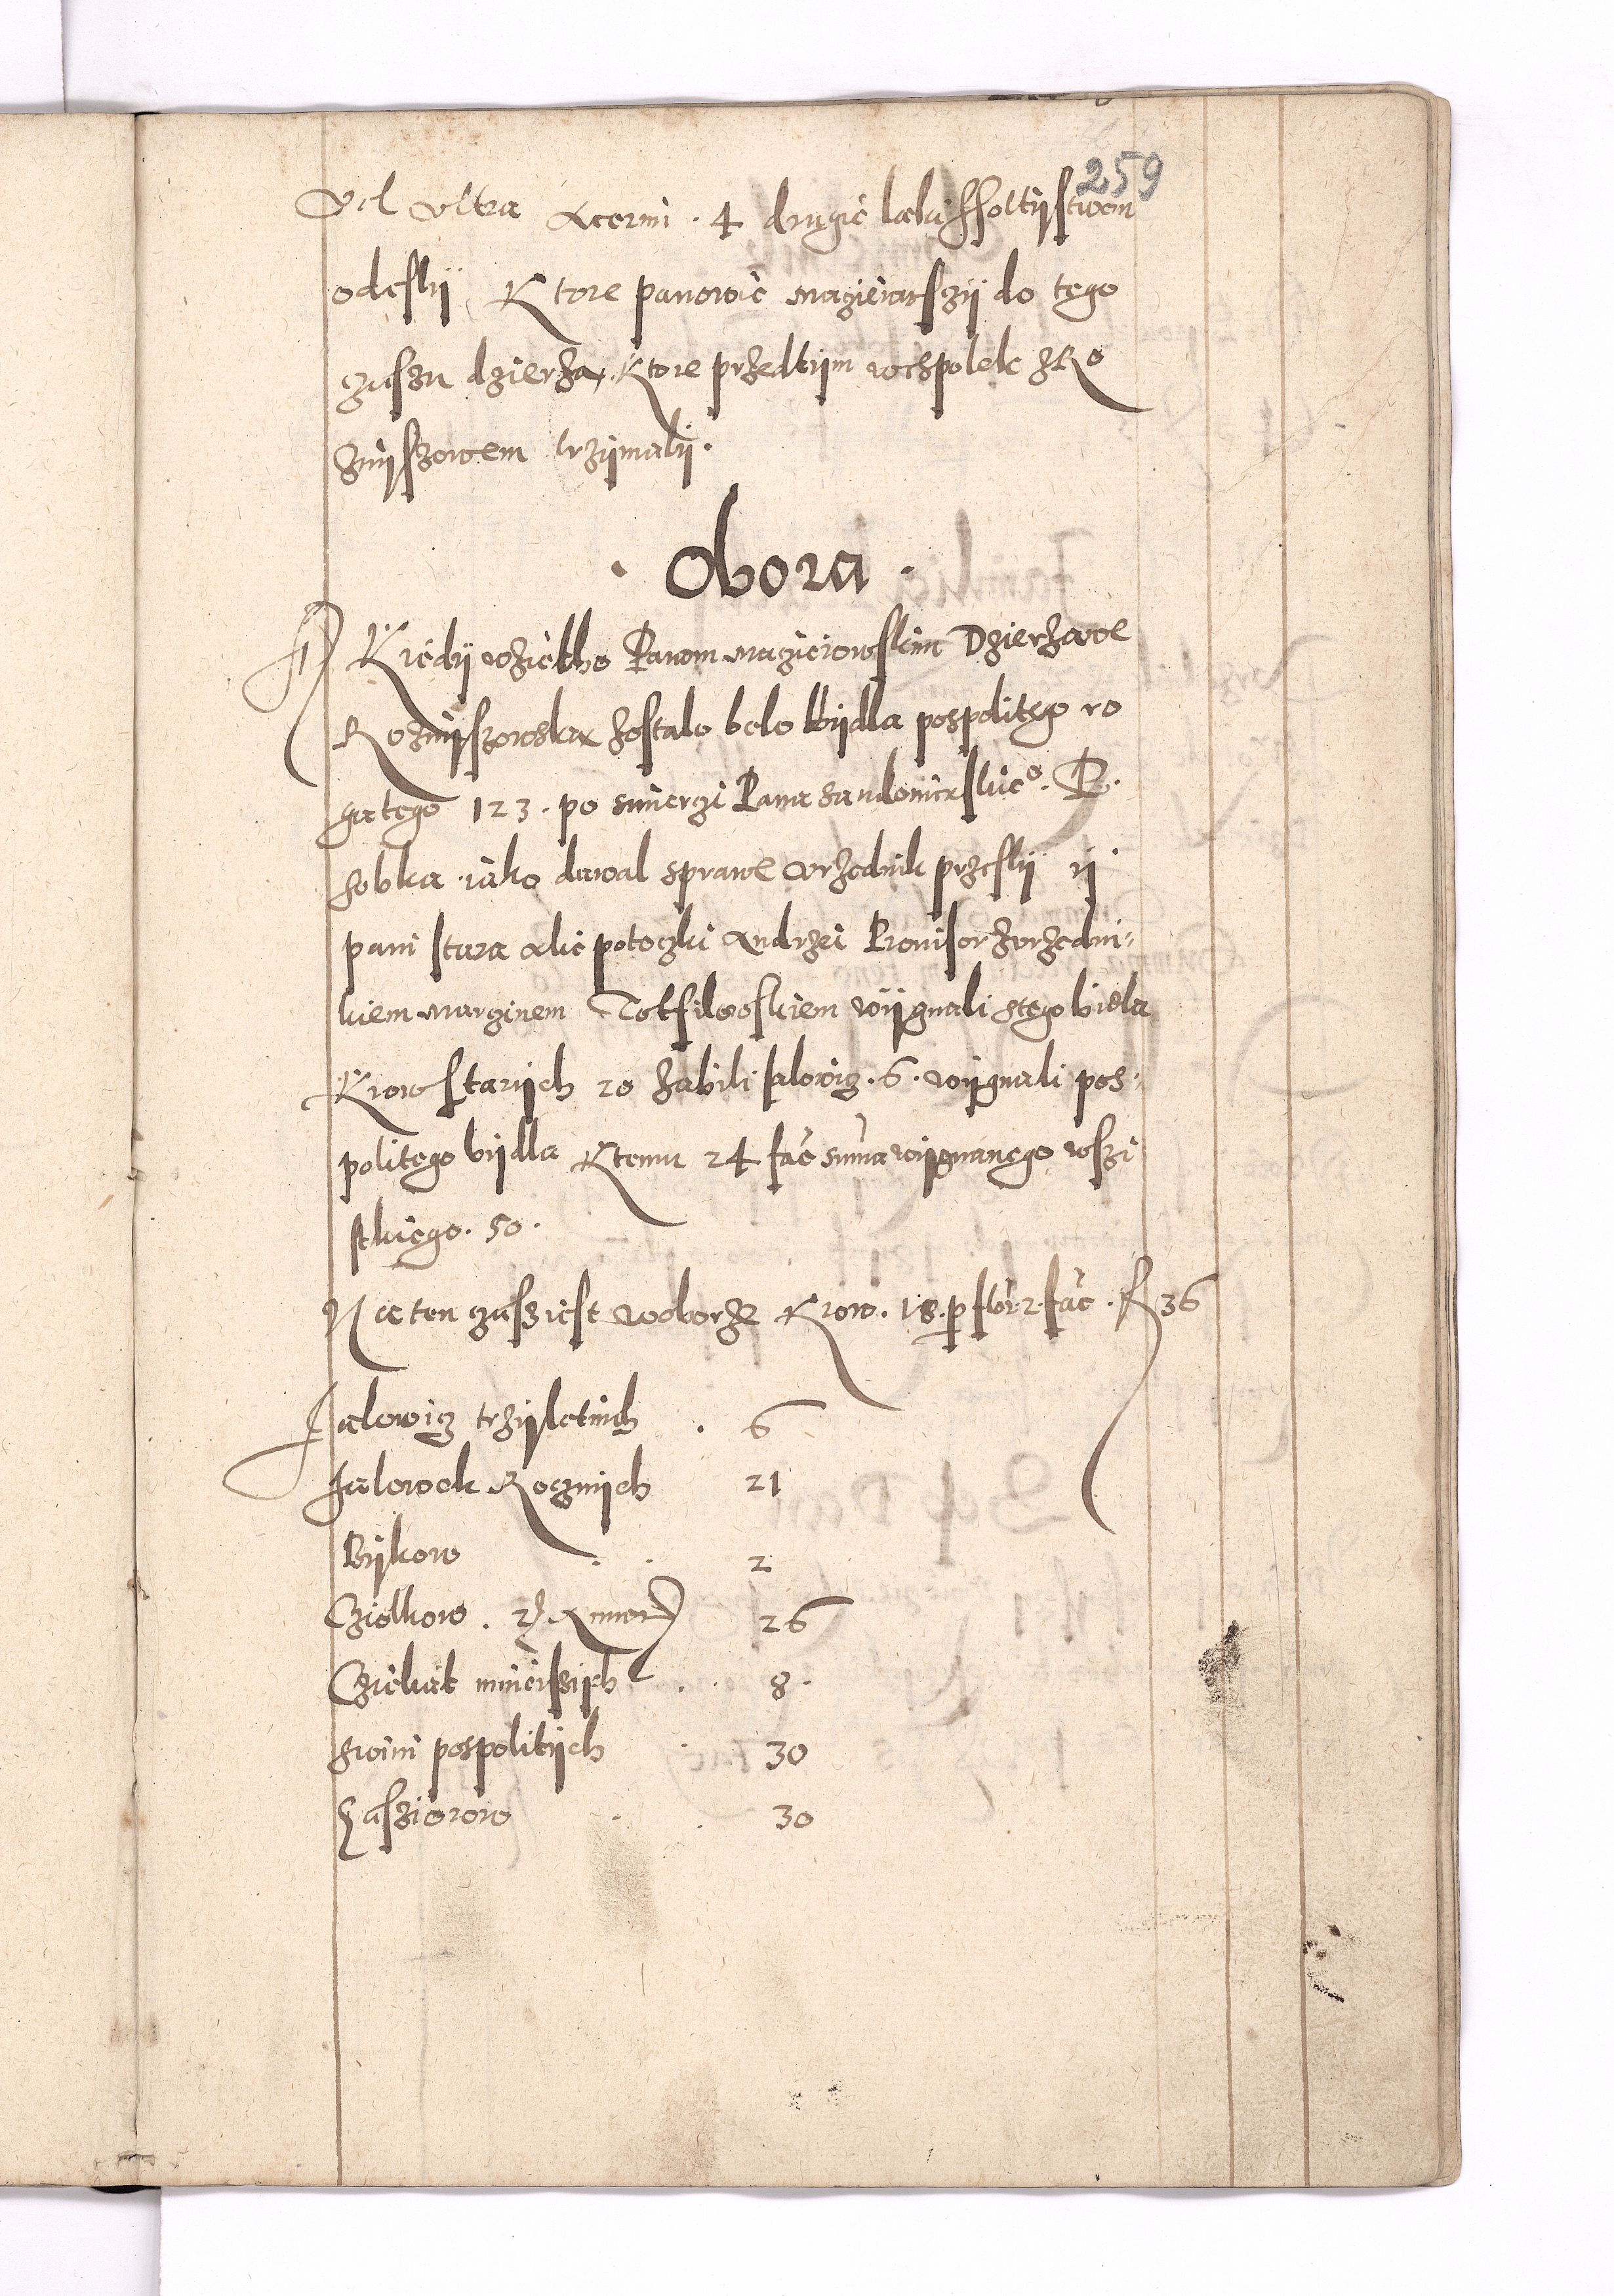 259
Vel Vltra Acerni . 4 drugie laki ssoltijstwem
odeslij Ktore panowie magieiarszij do tego
czaszu dzierza, Ktore przedtijm wespolek z Ro
zmijszowem trzijmalij .
. Obora .
Kiedij wzietho Panom magieiowskim Dzierzawe
Rozmijszowska zostalo belo bijdla pospolitego ro
gatego 123 . po smierczi Pana Sandomirskie⁰ . P .
sobka iako dawal sprawe vrzednik przeslij ij
pani stara Alie potoczki Andrzei Prouisor zvrzedni-
kiem marzinem Totfilowskiem wijgnali stego bidla
Krow starijch 20 zabili ialowicz . 6 . wijgnali pos-
politego bijdla Ktemu 24 fac suma wijgnanego wszi
stkiego . 50 .
Na ten czas iest woborze Krow . 18 . p flor 2 fac . f 36
Jalowicz trzijletnich . 6
Jalowek Rocznijch 21
Bijkow . . 2
Cziolkow . 26
Czielat mnieiszijch . . 8 .
swini pospolitijch . 30
Proszio
30